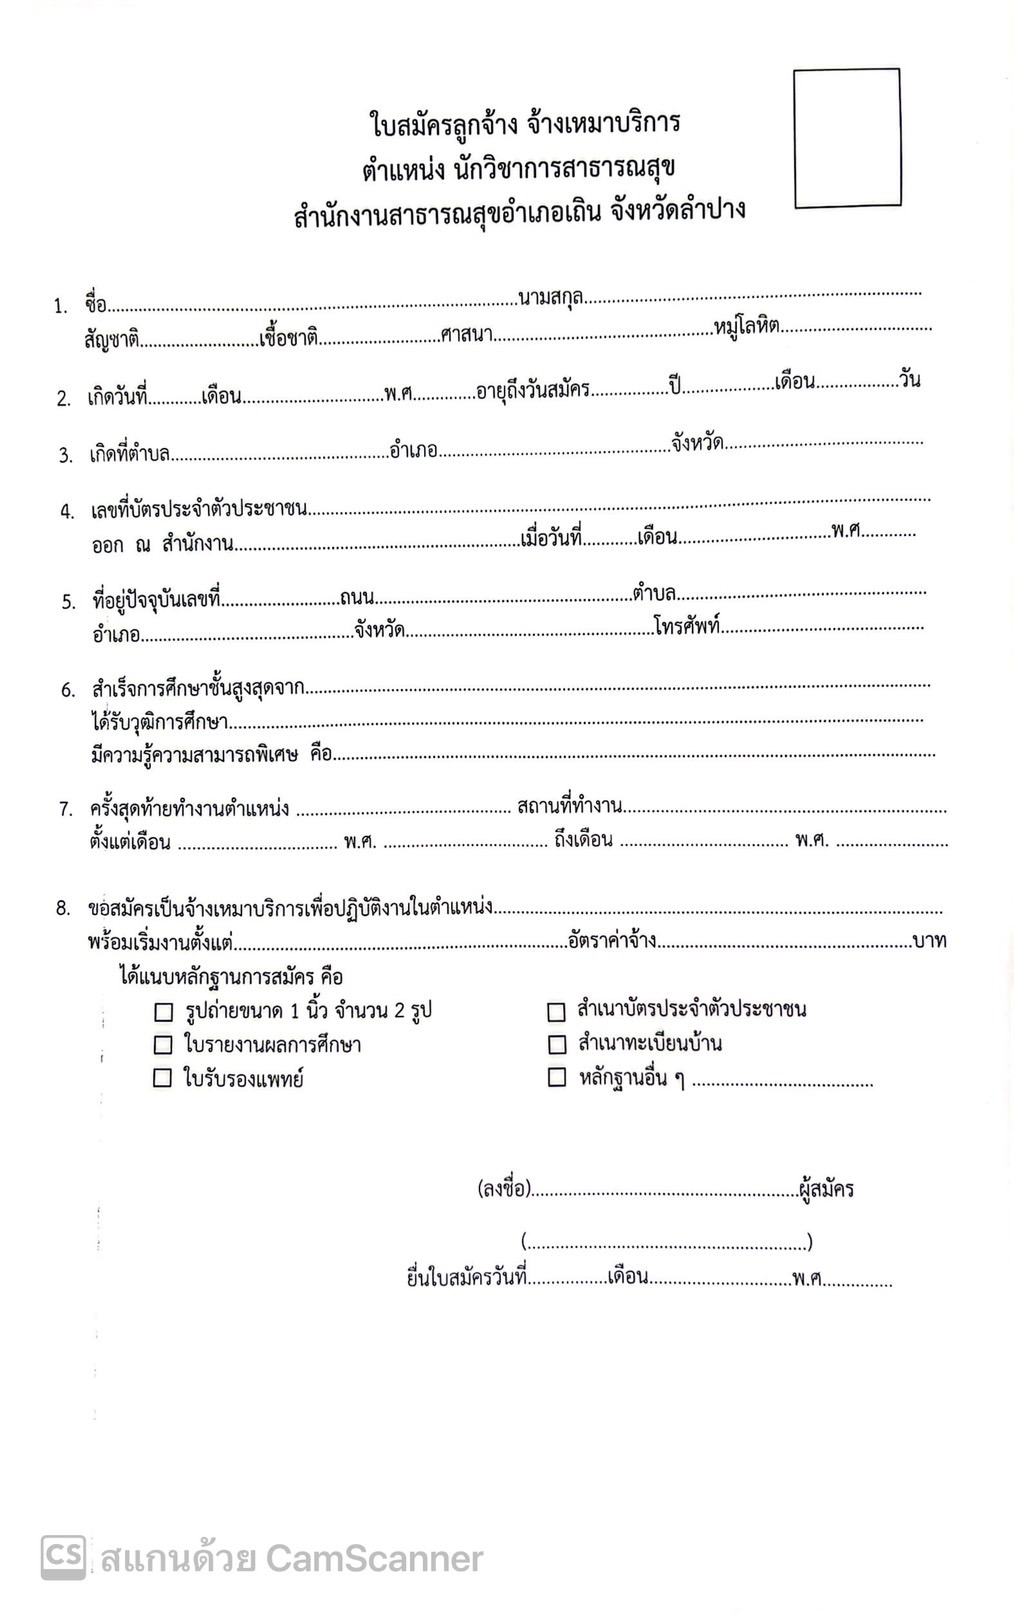 ใบสมัครลูกจ้าง จ้างเหมาบริการ
ตำแหน่ง นักวิชาการสาธารณสุข
สำนักงานสาธารณสุขอำเภอเถิน จังหวัดลำปาง
1. ชื่อ....................นามสกุล....................
สัญชาติ....................เชื้อชาติ....................ศาสนา....................หมู่โลหิต....................
2. เกิดวันที่...........เดือน....................พ.ศ.............อายุถึงวันสมัคร................ปี...................เดือน.................วัน
3. เกิดที่ตำบล....................อำเภอ....................จังหวัด....................
4. เลขที่บัตรประจำตัวประชาชน....................
ออก ณ สำนักงาน....................เมื่อวันที่...........เดือน....................พ.ศ............
5. ที่อยู่ปัจจุบันเลขที่....................ถนน....................ตำบล....................
อำเภอ....................จังหวัด....................โทรศัพท์....................
6. สำเร็จการศึกษาชั้นสูงสุดจาก....................
ได้รับวุฒิการศึกษา....................
มีความรู้ความสามารถพิเศษ คือ....................
7. ครั้งสุดท้ายทำงานตำแหน่ง .................... สถานที่ทำงาน....................
ตั้งแต่เดือน .................... พ.ศ. .................... ถึงเดือน .................... พ.ศ. ....................
8. ขอสมัครเป็นจ้างเหมาบริการเพื่อปฏิบัติงานในตำแหน่ง....................
พร้อมเริ่มงานตั้งแต่....................อัตราค่าจ้าง....................บาท
ได้แนบหลักฐานการสมัคร คือ
☐ รูปถ่ายขนาด 1 นิ้ว จำนวน 2 รูป ☐ สำเนาบัตรประจำตัวประชาชน
☐ ใบรายงานผลการศึกษา ☐ สำเนาทะเบียนบ้าน
☐ ใบรับรองแพทย์ ☐ หลักฐานอื่น ๆ ....................
(ลงชื่อ)....................ผู้สมัคร
(....................)
ยื่นใบสมัครวันที่.................เดือน....................พ.ศ...............
CS สแกนด้วย CamScanner